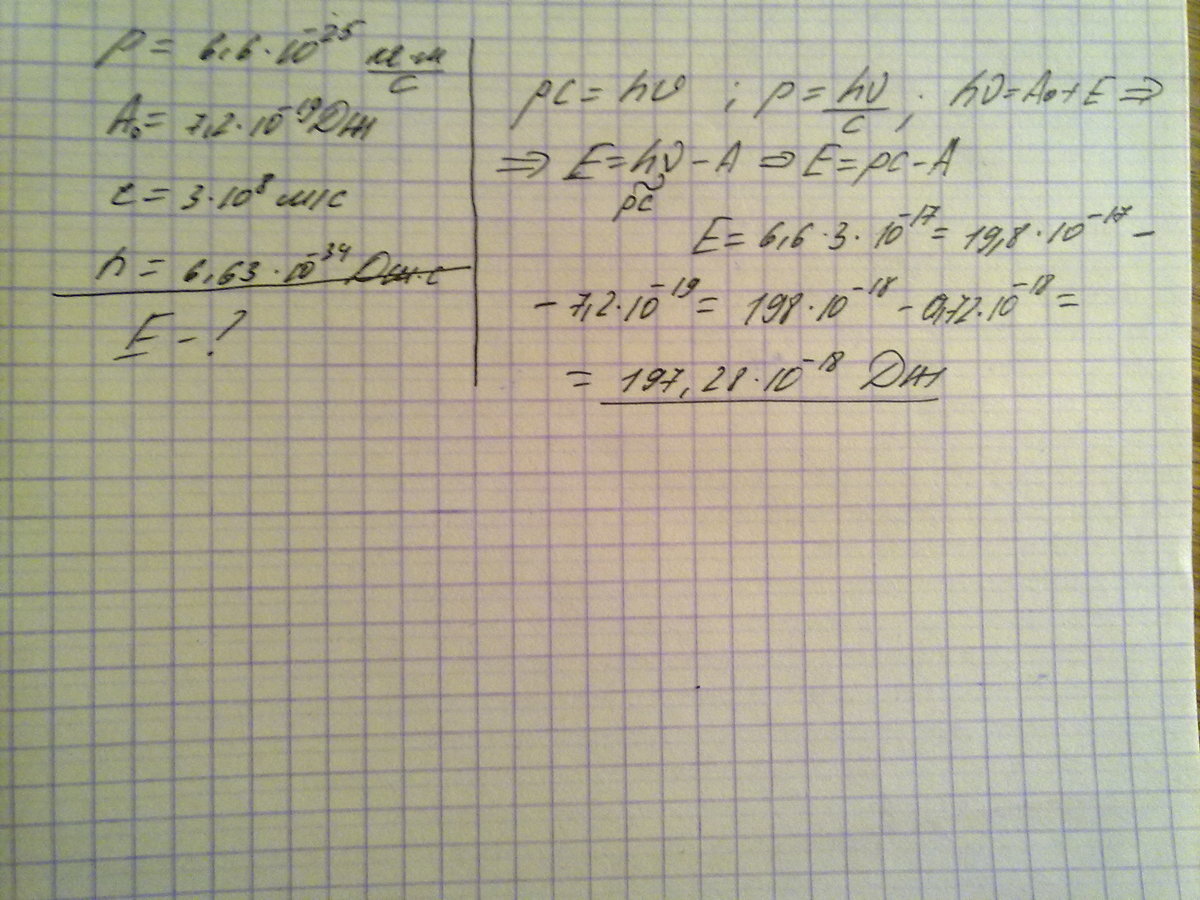 p = 6,6·10⁻²⁵ кг·м/с
A₀ = 7,2·10⁻¹⁹ Дж
c = 3·10⁸ м/с
h = 6,63·10⁻³⁴ Дж·с
E – ?
pc = hν ; p = hν/c ; hν = A₀ + E ⇒
⇒ E = hν – A ⇒ E = pc – A
pc
E = 6,6·3·10⁻¹⁷ = 19,8·10⁻¹⁷ –
– 7,2·10⁻¹⁹ = 198·10⁻¹⁸ – 0,72·10⁻¹⁸ =
= 197,28·10⁻¹⁸ Дж